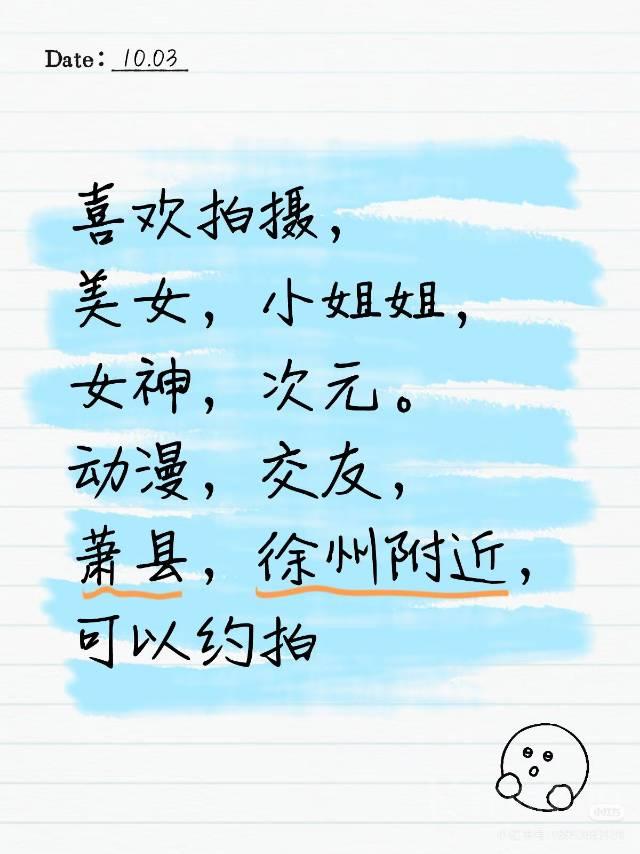 Date: 10.03
喜欢拍摄，
美女，小姐姐，
女神，次元。
动漫，交友，
萧县，徐州附近，
可以约拍
小红书